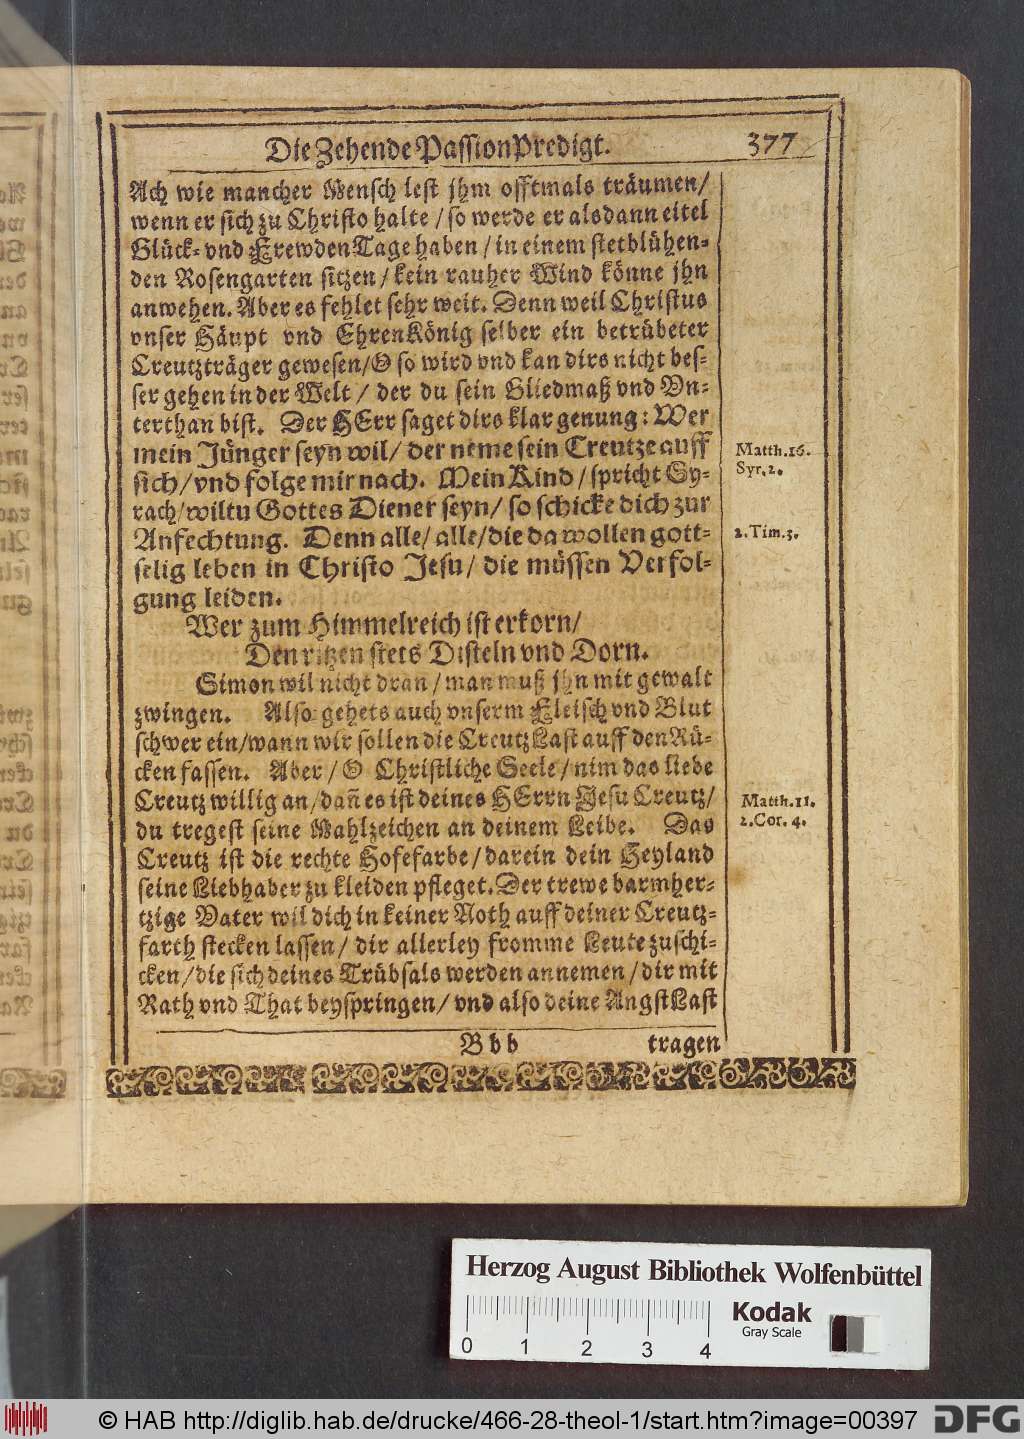 Die Zehende PassionPredigt. 377
Ach wie mancher Mensch lest jhm offtmals träumen/
wenn er sich zu Christo halte / so werde er alsdann eitel
Glück- vnd FrewdenTage haben / in einem stetblühen-
den Rosengarten sitzen / kein rauher Wind könne jhn
anwehen. Aber es fehlet sehr weit. Denn weil Christus
vnser Häupt vnd EhrenKönig selber ein betrübeter
Creutzträger gewesen/ O so wird vnd kan dirs nicht bes-
ser gehen in der Welt / der du sein Gliedmaß vnd Vn-
terthan bist. Der HErr saget dirs klar genung: Wer
mein Jünger seyn wil/ der neme sein Creutze auff
sich/ vnd folge mir nach. Mein Kind / spricht Sy-
rach/ wiltu Gottes Diener seyn/ so schicke dich zur
Anfechtung. Denn alle/ alle/ die da wollen gott-
selig leben in Christo Jesu/ die müssen Verfol-
gung leiden.
Matth.16.
Syr.2.
2.Tim.3.
Wer zum Himmelreich ist erkorn/
Den ritzen stets Disteln vnd Dorn.
Simon wil nicht dran / man muß jhn mit gewalt
zwingen. Also gehets auch vnserm Fleisch vnd Blut
schwer ein/ wann wir sollen die CreutzLast auff den Rü-
cken fassen. Aber / O Christliche Seele / nim das liebe
Creutz willig an / dañ es ist deines HErrn Jesu Creutz/
du tregest seine Mahlzeichen an deinem Leibe. Das
Creutz ist die rechte Hofefarbe / darein dein Heyland
seine Liebhaber zu kleiden pfleget. Der trewe barmher-
tzige Vater wil dich in keiner Noth auff deiner Creutz-
farth stecken lassen / dir allerley fromme Leute zuschi-
cken / die sich deines Trübsals werden annemen / dir mit
Rath vnd That beyspringen/ vnd also deine AngstLast
Matth.11.
2.Cor. 4.
B b b tragen
Herzog August Bibliothek Wolfenbüttel
Kodak
Gray Scale
0 1 2 3 4
© HAB http://diglib.hab.de/drucke/466-28-theol-1/start.htm?image=00397
DFG